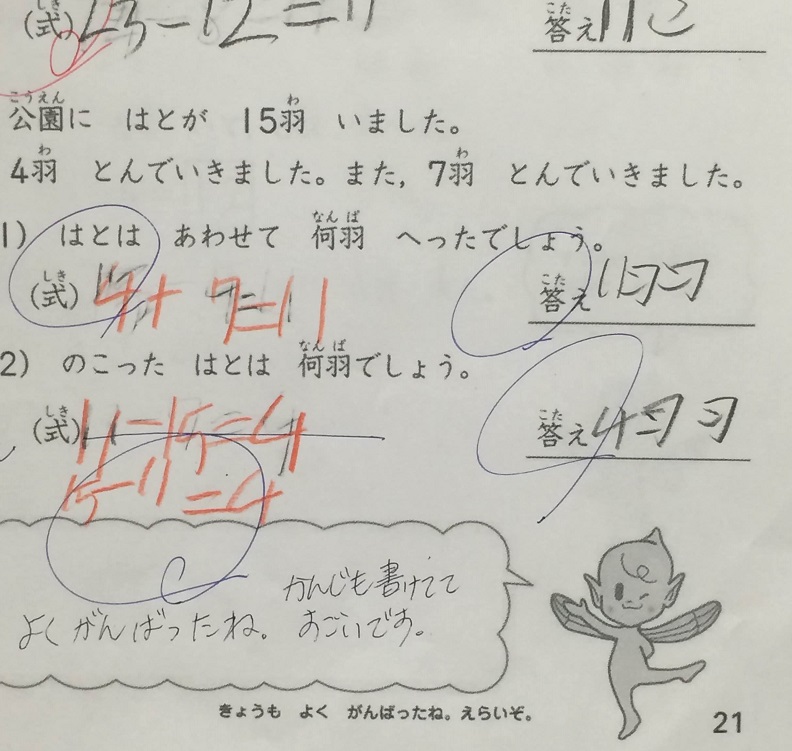 (式) 23-12=11 答え 11こ
公園に はとが 15羽 いました。
4羽 とんでいきました。また, 7羽 とんでいきました。
1) はとは あわせて 何羽 へったでしょう。
(式) 4+7=11 答え 11羽
2) のこった はとは 何羽でしょう。
(式) 11-15=4 答え 4羽
15-11=4
かんじも書けてて
よくがんばったね。 すごいです。
きょうも よく がんばったね。えらいぞ。
21